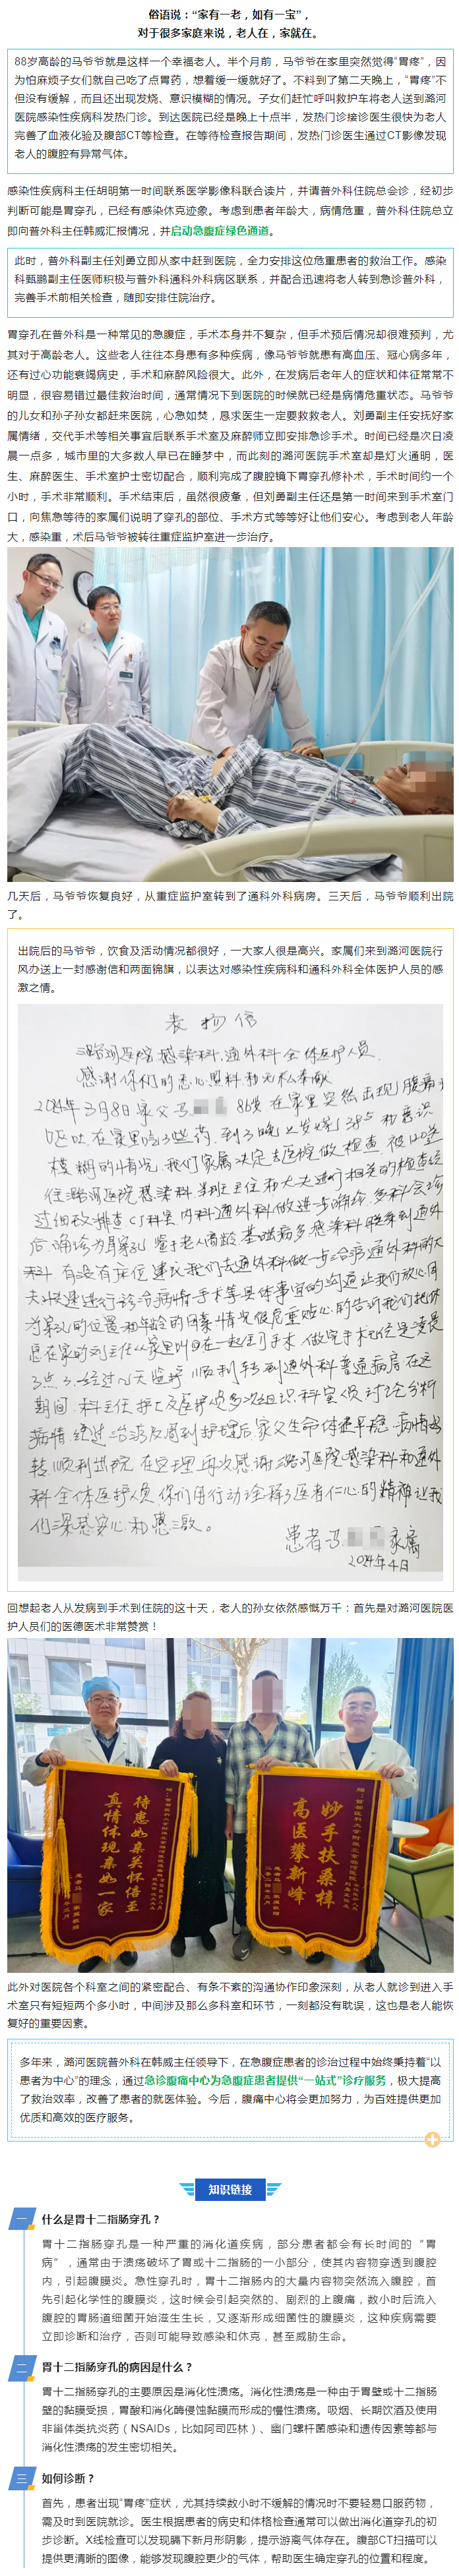 俗语说：“家有一老，如有一宝”，
对于很多家庭来说，老人在，家就在。
88岁高龄的马爷爷就是这样一个幸福老人。半个月前，马爷爷在家里突然觉得“胃疼”，因
为怕麻烦子女们就自己吃了点胃药，想着缓一缓就好了。不料到了第二天晚上，“胃疼”不
但没有缓解，而且还出现发烧、意识模糊的情况。子女们赶忙呼叫救护车将老人送到潞河
医院感染性疾病科发热门诊。到达医院已经是晚上十点半，发热门诊接诊医生很快为老人
完善了血液化验及腹部CT等检查。在等待检查报告期间，发热门诊医生通过CT影像发现
老人的腹腔有异常气体。
感染性疾病科主任胡明第一时间联系医学影像科联合读片，并请普外科住院总会诊，经初步
判断可能是胃穿孔，已经有感染休克迹象。考虑到患者年龄大，病情危重，普外科住院总立
即向普外科主任韩威汇报情况，并启动急腹症绿色通道。
此时，普外科副主任刘勇立即从家中赶到医院，全力安排这位危重患者的救治工作。感染
科甄鹏副主任医师积极与普外科通科外科病区联系，并配合迅速将老人转到急诊普外科，
完善手术前相关检查，随即安排住院治疗。
胃穿孔在普外科是一种常见的急腹症，手术本身并不复杂，但手术预后情况却很难预判，尤
其对于高龄老人。这些老人往往本身患有多种疾病，像马爷爷就患有高血压、冠心病多年，
还有过心功能衰竭病史，手术和麻醉风险很大。此外，在发病后老年人的症状和体征常常不
明显，很容易错过最佳救治时间，通常情况下到医院的时候就已经是病情危重状态。马爷爷
的儿女和孙子孙女都赶来医院，心急如焚，恳求医生一定要救救老人。刘勇副主任安抚好家
属情绪，交代手术等相关事宜后联系手术室及麻醉师立即安排急诊手术。时间已经是次日凌
晨一点多，城市里的大多数人早已在睡梦中，而此刻的潞河医院手术室却是灯火通明，医
生、麻醉医生、手术室护士密切配合，顺利完成了腹腔镜下胃穿孔修补术，手术时间约一个
小时，手术非常顺利。手术结束后，虽然很疲惫，但刘勇副主任还是第一时间来到手术室门
口，向焦急等待的家属们说明了穿孔的部位、手术方式等等好让他们安心。考虑到老人年龄
大，感染重，术后马爷爷被转往重症监护室进一步治疗。
几天后，马爷爷恢复良好，从重症监护室转到了通科外科病房。三天后，马爷爷顺利出院
了。
出院后的马爷爷，饮食及活动情况都很好，一大家人很是高兴。家属们来到潞河医院行
风办送上一封感谢信和两面锦旗，以表达对感染性疾病科和通科外科全体医护人员的感
激之情。
表扬信
潞河医院感染科,通外科全体医护人员
感谢你们的悉心照料和无私奉献
2024年3月8日家父马 86岁在家里突然出现腹痛
呕吐在家里吃了些药.到了晚上发烧38.5和意识
模糊的情况.我们家属决定去医院做检查
科全体医护人员.你们用行动诠释了医者仁心的精神让我
们深感安心和感激。
患者马 家属
2024年4月
回想起老人从发病到手术到住院的这十天，老人的孙女依然感慨万千：首先是对潞河医院医
护人员们的医德医术非常赞赏！
待患如亲关怀倍至
真情体现亲如一家
妙手扶桑梓
高医攀新峰
此外对医院各个科室之间的紧密配合、有条不紊的沟通协作印象深刻，从老人就诊到进入手
术室只有短短两个多小时，中间涉及那么多科室和环节，一刻都没有耽误，这也是老人能恢
复好的重要因素。
多年来，潞河医院普外科在韩威主任领导下，在急腹症患者的诊治过程中始终秉持着“以
患者为中心”的理念，通过急诊腹痛中心为急腹症患者提供“一站式”诊疗服务，极大提高
了救治效率，改善了患者的就医体验。今后，腹痛中心将会更加努力，为百姓提供更加
优质和高效的医疗服务。
知识链接
一
什么是胃十二指肠穿孔？
胃十二指肠穿孔是一种严重的消化道疾病，部分患者都会有长时间的“胃
病”，通常由于溃疡破坏了胃或十二指肠的一小部分，使其内容物穿透到腹腔
内，引起腹膜炎。急性穿孔时，胃十二指肠内的大量内容物突然流入腹腔，首
先引起化学性的腹膜炎，这时候会引起突然的、剧烈的上腹痛，数小时后流入
腹腔的胃肠道细菌开始滋生生长，又逐渐形成细菌性的腹膜炎，这种疾病需要
立即诊断和治疗，否则可能导致感染和休克，甚至威胁生命。
二
胃十二指肠穿孔的病因是什么？
胃十二指肠穿孔的主要原因是消化性溃疡。消化性溃疡是一种由于胃壁或十二指肠
壁的黏膜受损，胃酸和消化酶侵蚀黏膜而形成的慢性溃疡。吸烟、长期饮酒及使用
非甾体类抗炎药（NSAIDs，比如阿司匹林）、幽门螺杆菌感染和遗传因素等都与
消化性溃疡的发生密切相关。
三
如何诊断？
首先，患者出现“胃疼”症状，尤其持续数小时不缓解的情况时不要轻易口服药物，
需及时到医院就诊。医生根据患者的病史和体格检查通常可以做出消化道穿孔的初
步诊断。X线检查可以发现膈下新月形阴影，提示游离气体存在。腹部CT扫描可以
提供更清晰的图像，能够发现腹腔更少的气体，帮助医生确定穿孔的位置和程度。